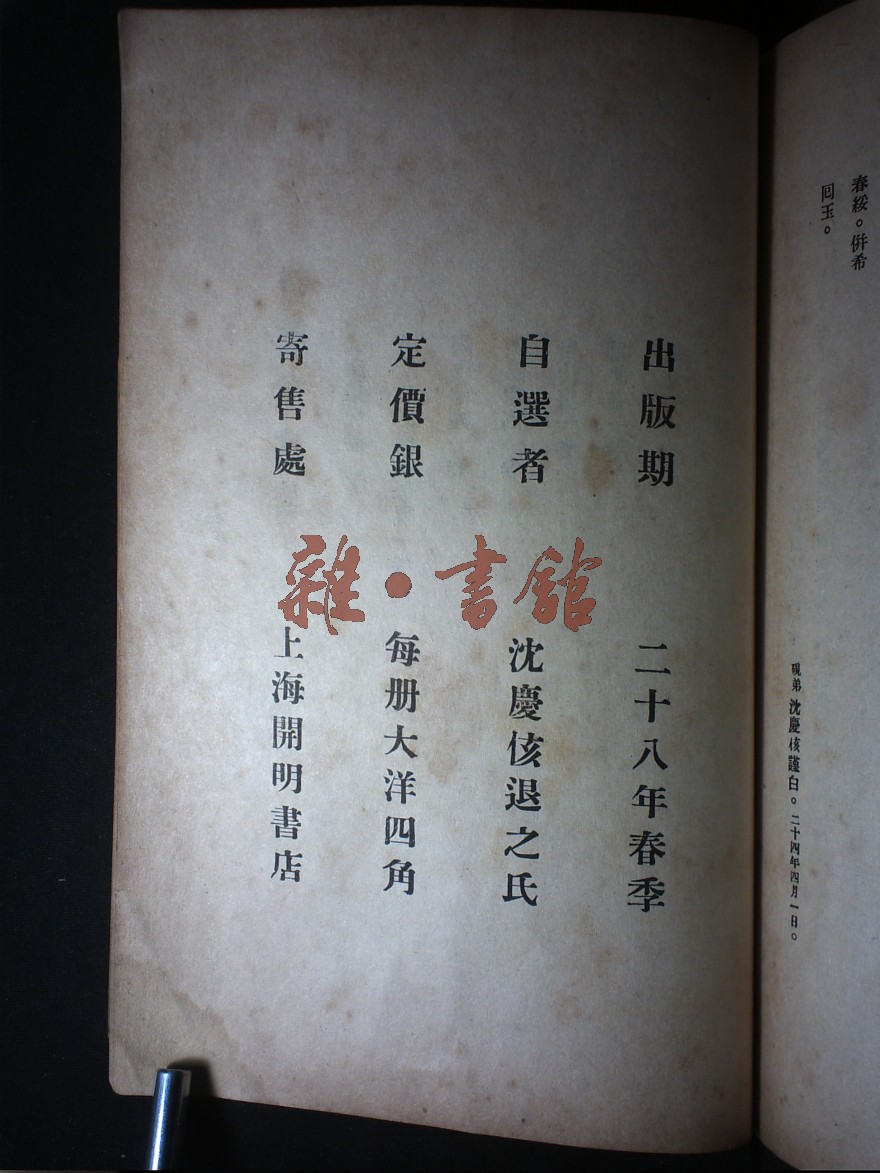 春綏。併希
囘玉。
硯弟 沈慶侅謹白。二十四年四月一日。
出版期 二十八年春季
自選者 沈慶侅退之氏
定價銀 每册大洋四角
寄售處 上海開明書店
雜·書館